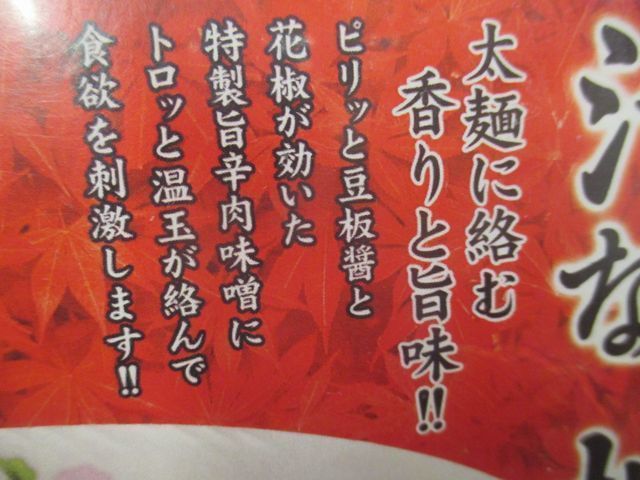 汁な
太麺に絡む
香りと旨味!!
ピリッと豆板醤と
花椒が効いた
特製旨辛肉味噌に
トロッと温玉が絡んで
食欲を刺激します!!